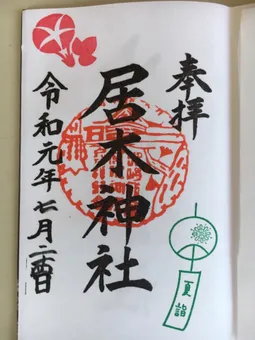 奉拝
居木神社
令和元年七月二四日
夏詣